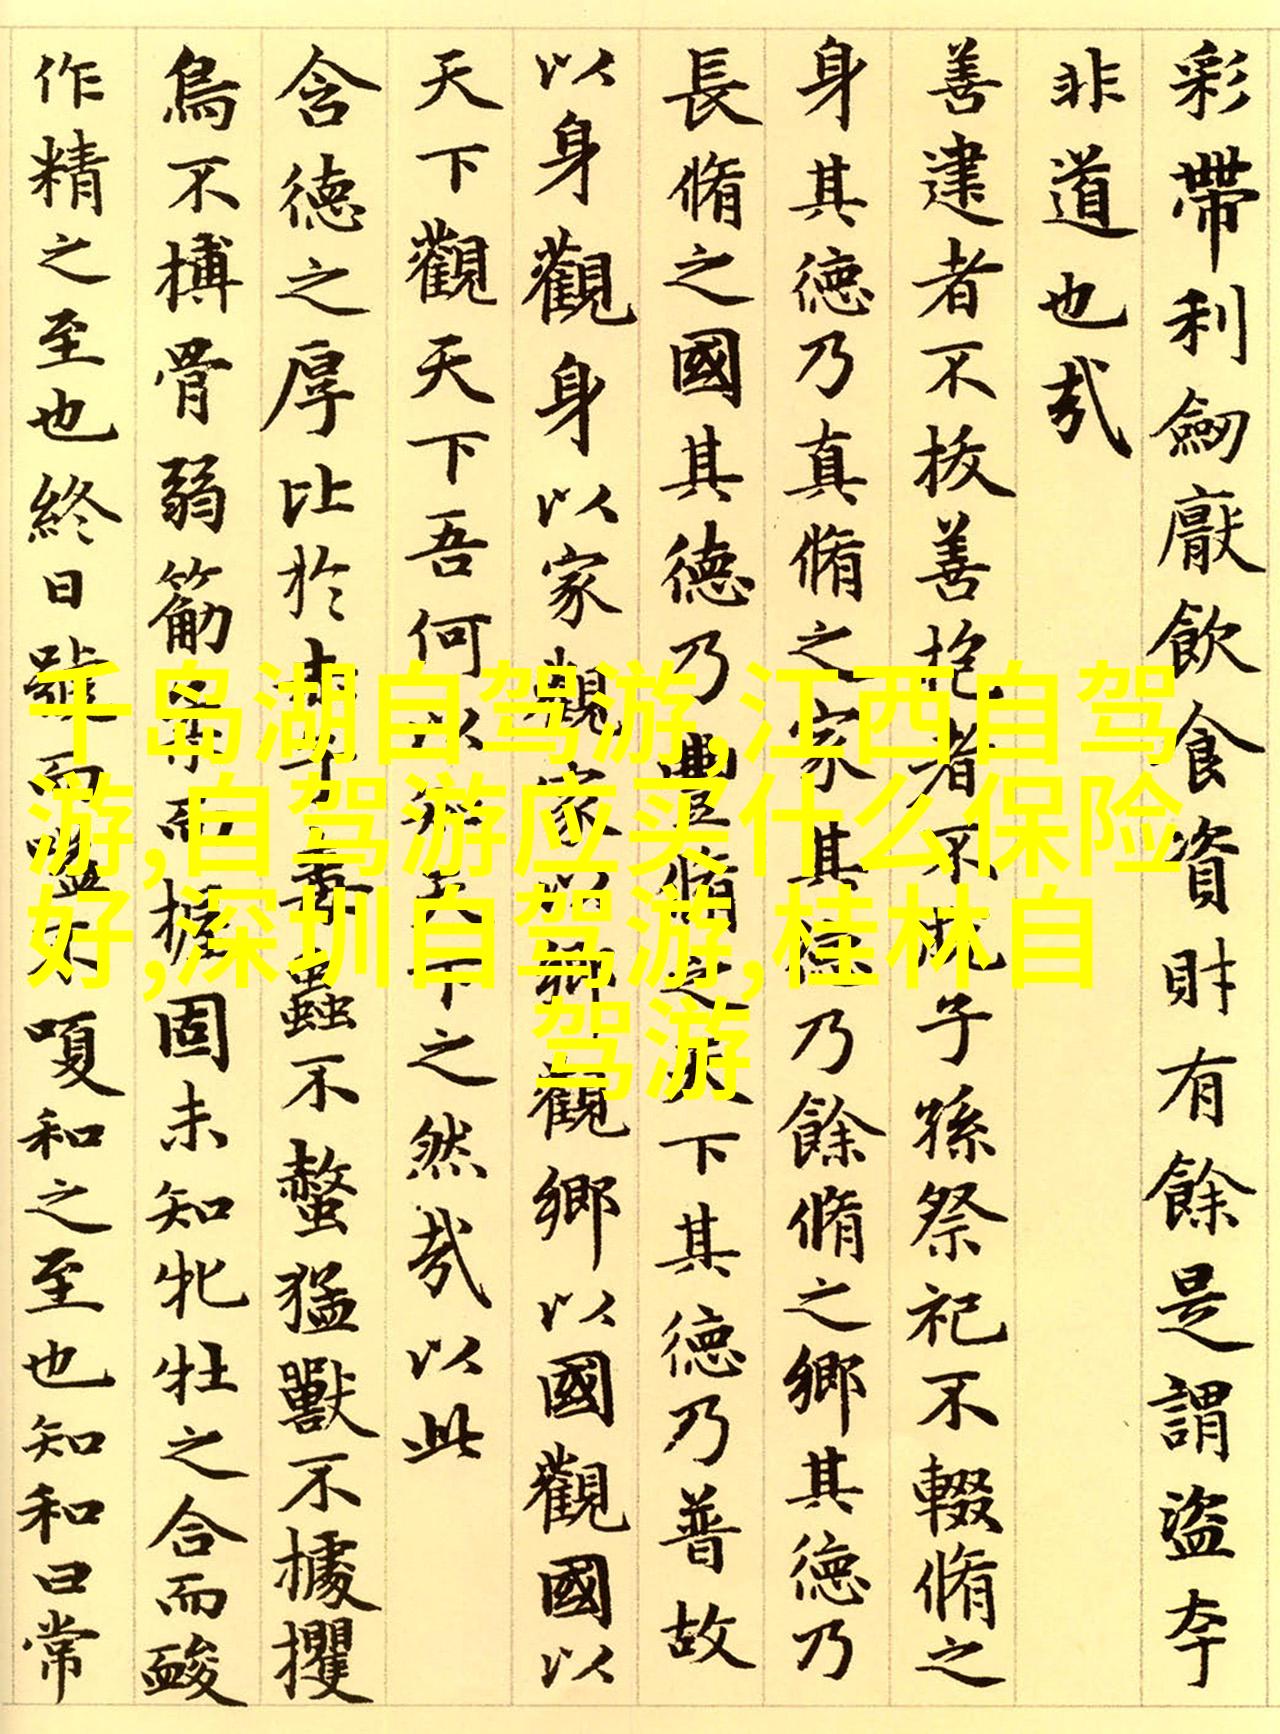 彩帶利劒厭飲食資財有餘是謂盜夸
非道也哉
善建者不拔善抱者不脫子孫祭祀不輟脩之
身其德乃真脩之家其德乃餘脩之鄉其德乃
長脩之國其德乃豐脩之天下其德乃普故
以身觀身以家觀家以鄉觀鄉以國觀國以
天下觀天下吾何以知天下之然哉以此
含德之厚比於赤子毒蟲不螫猛獸不據攫
鳥不搏骨弱筋柔而握固未知牝牡之合而䘒
作精之至也終日號而嗌不嗄和之至也知和曰常
千岛湖自驾游,江西自驾
游,自驾游应买什么保险
好,深圳自驾游,桂林自
驾游